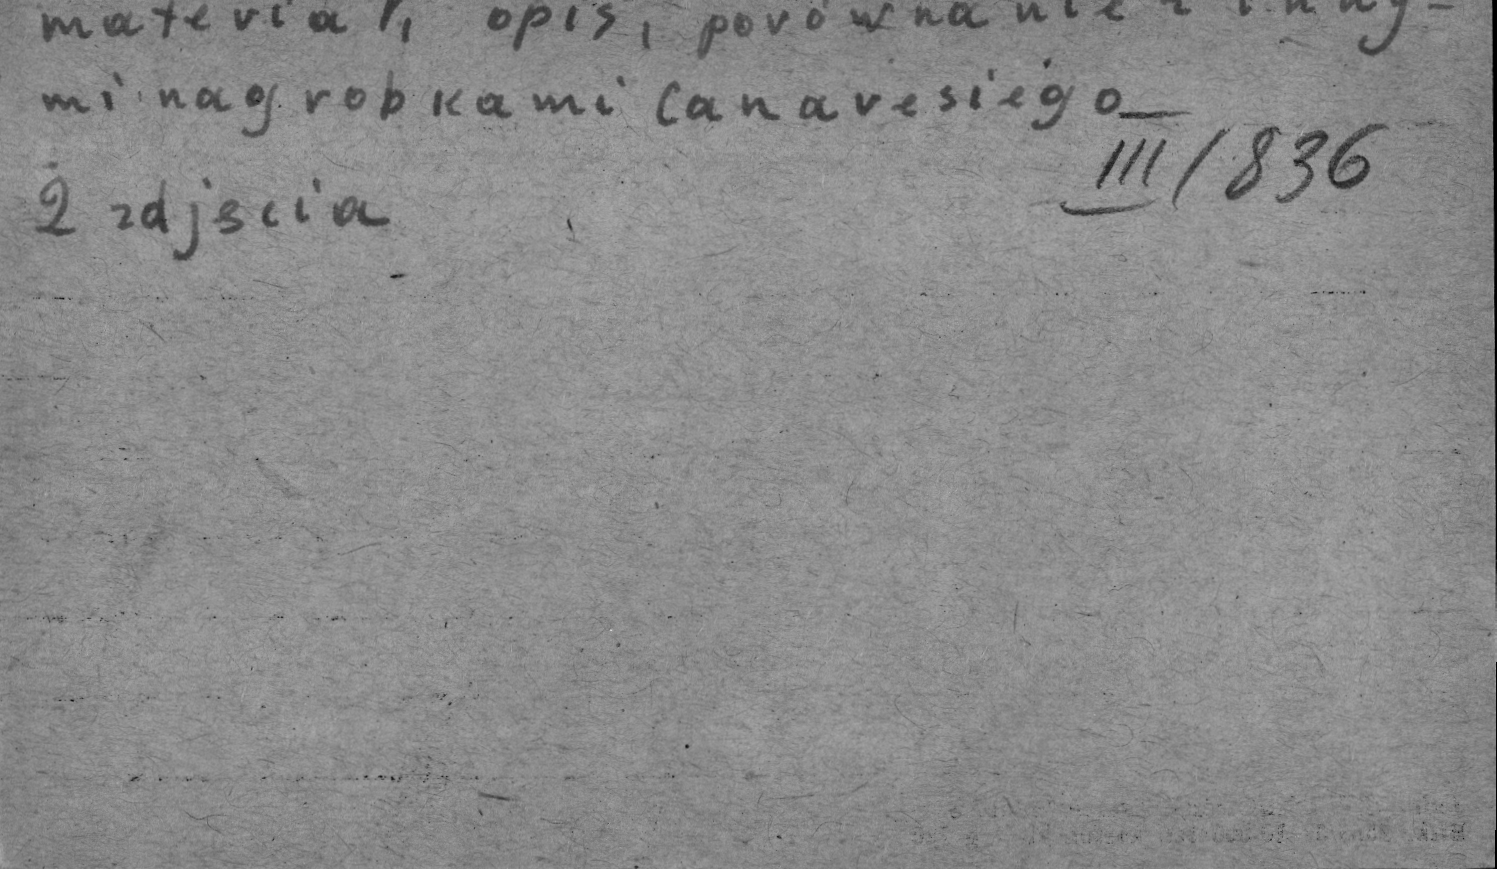 materiał, opis, porównanie z inny-
mi nagrobkami Canavesiego
III/836
2 zdjęcia